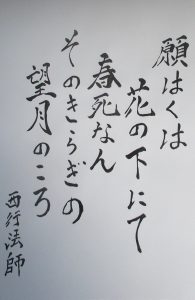 願はくは
花の下にて
春死なん
そのきさらぎの
望月のころ
西行法師